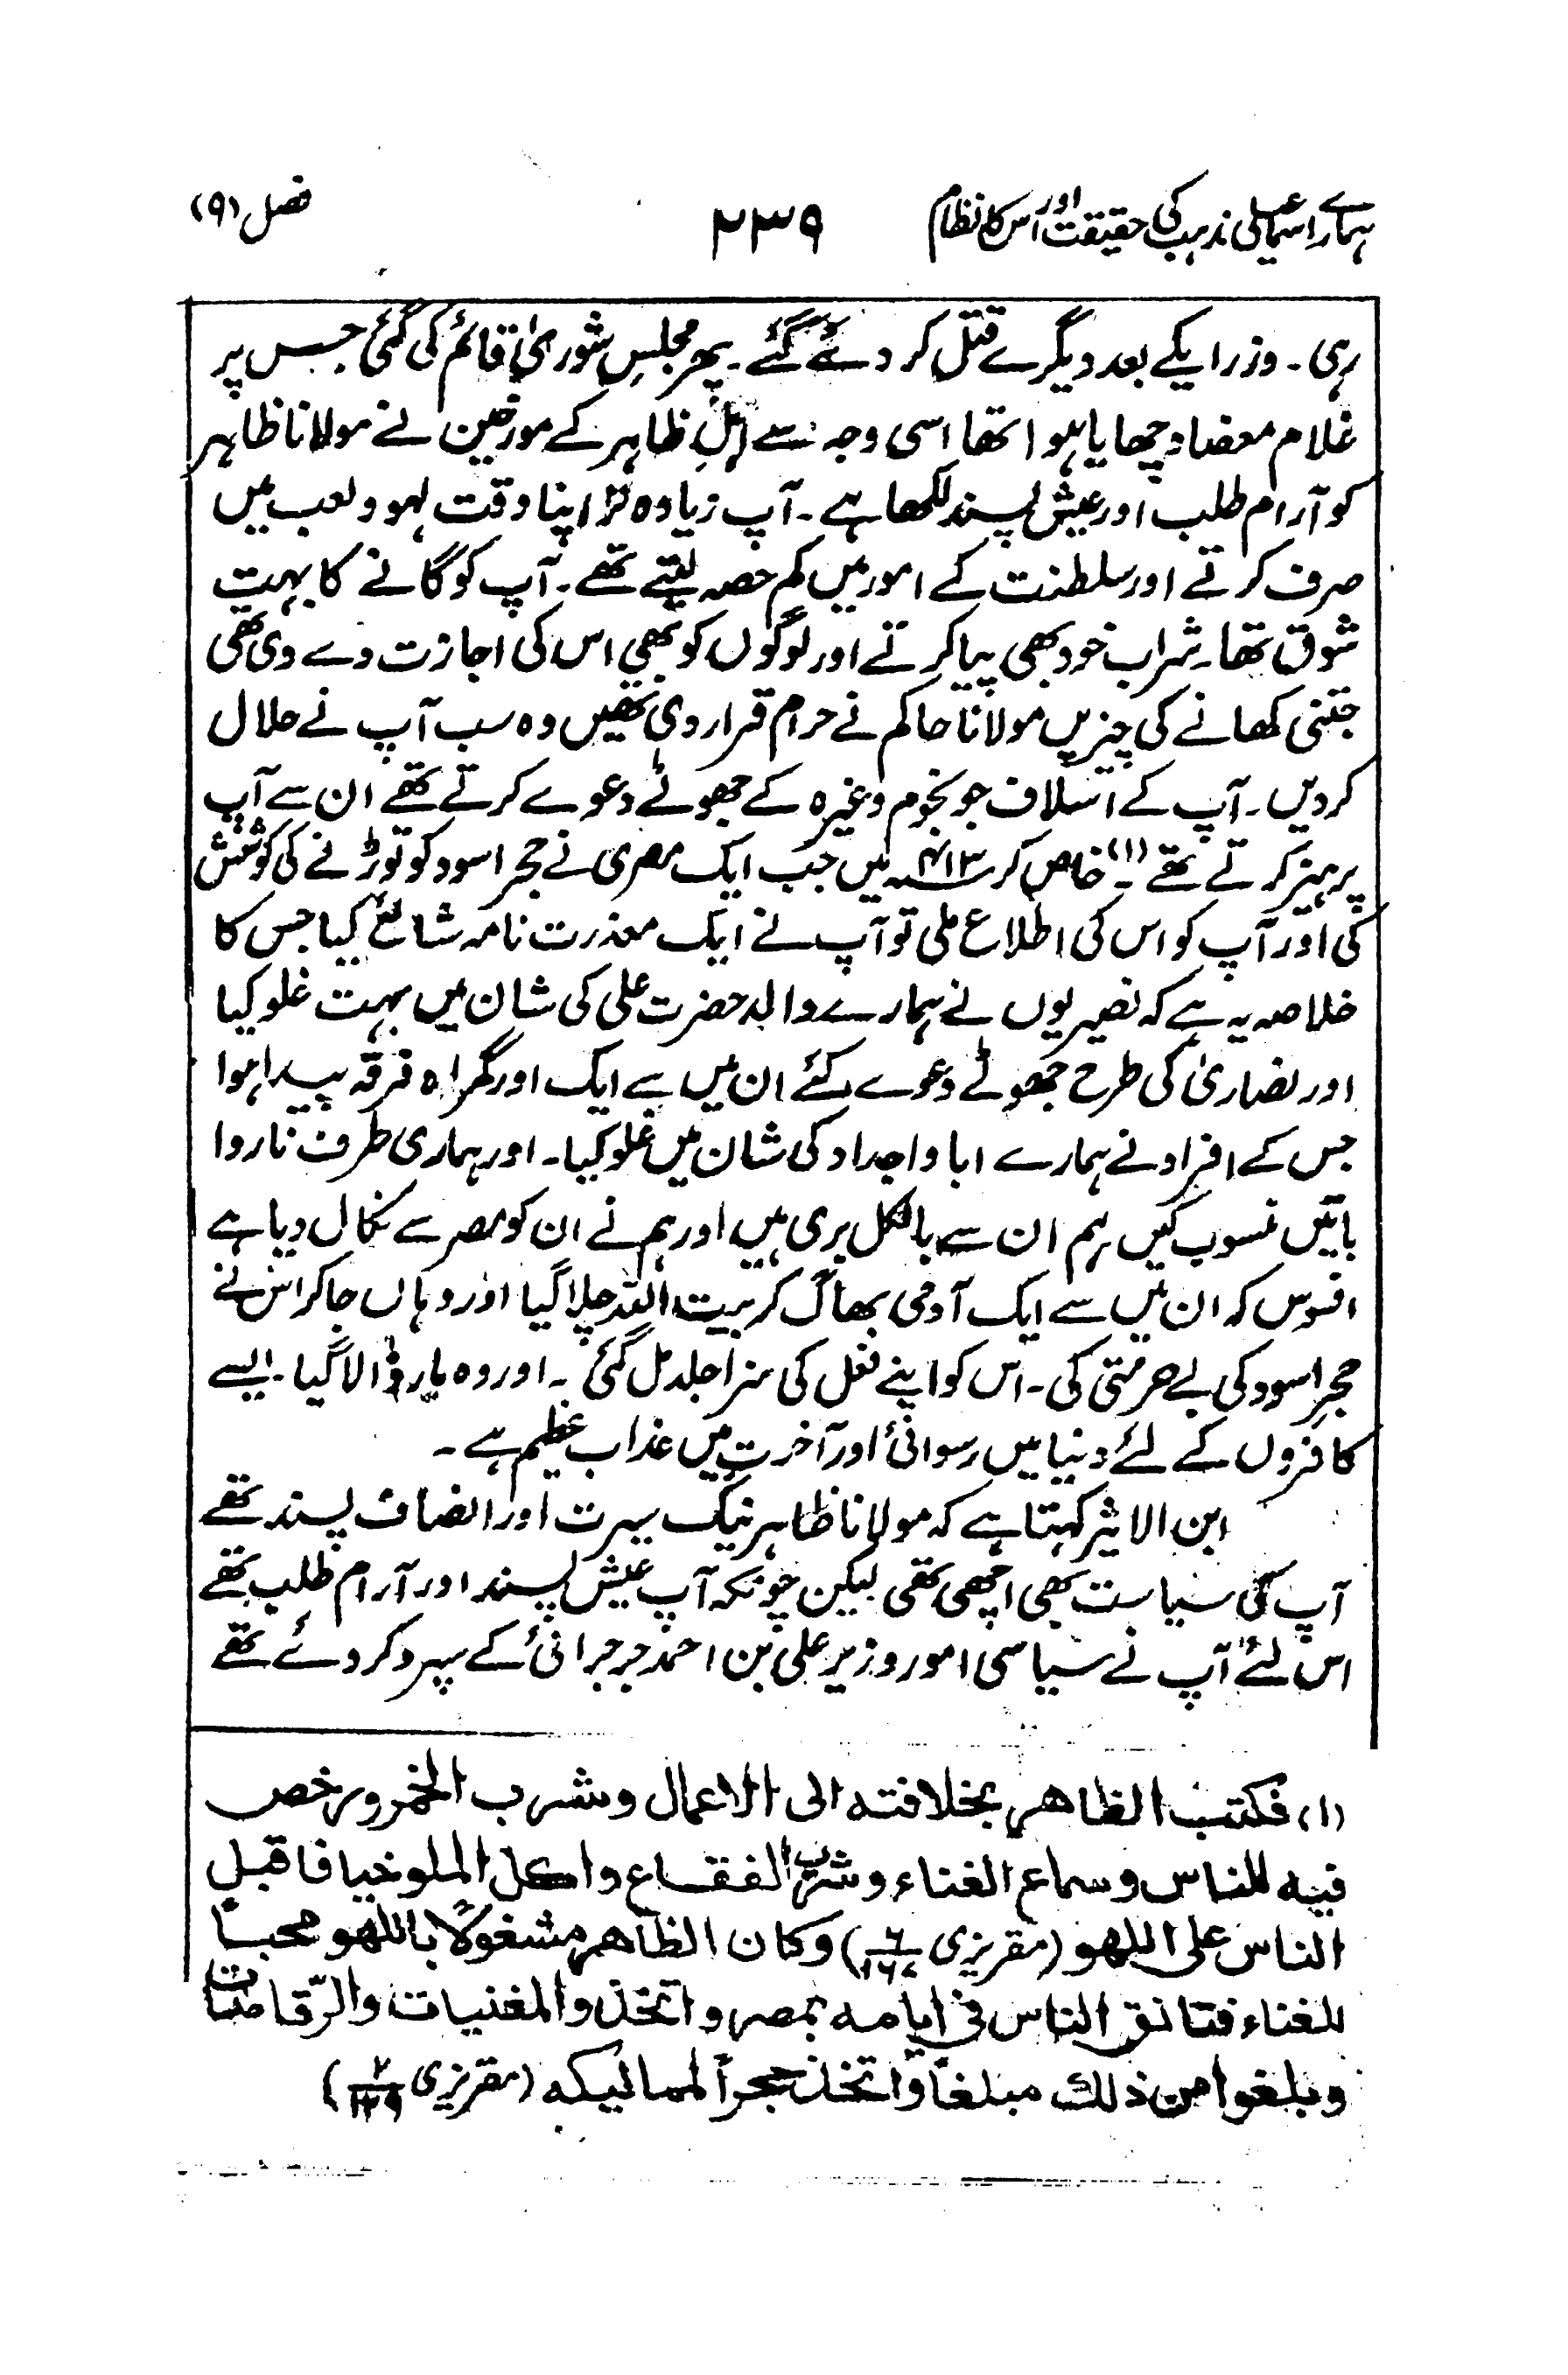 ہمارے اسماعیلی مذہب کی حقیقت اور اس کا نظام ۲۳۹ فصل (۹)
رہی ۔ وزرا یکے بعد دیگرے قتل کر دئے گئے ۔ پھر مجلسِ شوریٰ قائم کی گئی جس پر
غلام معضاد چھایا ہوا تھا اسی وجہ سے اہلِ ظاہر کے مورخین نے مولانا ظاہر
کو آرام طلب اور عیش پسند لکھا ہے ۔ آپ زیادہ تر اپنا وقت لہو و لعب میں
صرف کرتے اور سلطنت کے امور میں کم حصہ لیتے تھے ۔ آپ کو گانے کا بہت
شوق تھا ۔ شراب خود بھی پیا کرتے اور لوگوں کو بھی اس کی اجازت دے دی تھی
جتنی کھانے کی چیزیں مولانا حاکم نے حرام قرار دی تھیں وہ سب آپ نے حلال
کر دیں ۔ آپ کے اسلاف جو نجوم وغیرہ کے جھوٹے دعوے کرتے تھے ان سے آپ
پرہیز کرتے تھے (۱)۔ خاص کر ۴۱۳ھ میں جب ایک مصری نے حجر اسود کو توڑنے کی کوشش
کی اور آپ کو اس کی اطلاع ملی تو آپ نے ایک معذرت نامہ شائع کیا جس کا
خلاصہ یہ ہے کہ نصیریوں نے ہمارے والد حضرت علی کی شان میں بہت غلو کیا
اور نصاریٰ کی طرح جھوٹے دعوے کئے ان میں سے ایک اور گمراہ فرقہ پیدا ہوا
جس کے افراد نے ہمارے ابا و اجداد کی شان میں غلو کیا ۔ اور ہماری طرف ناروا
باتیں منسوب کیں ہم ان سے بالکل بری ہیں اور ہم نے ان کو مصر سے نکال دیا ہے
افسوس کہ ان میں سے ایک آدمی بھاگ کر بیت اللہ چلا گیا اور وہاں جا کر اس نے
حجرِ اسود کی بے حرمتی کی ۔ اس کو اپنے فعل کی سزا جلد مل گئی ۔ اور وہ مار ڈالا گیا ۔ ایسے
کافروں کے لئے دنیا میں رسوائی اور آخرت میں عذاب عظیم ہے ۔
ابن الاثیر کہتا ہے کہ مولانا ظاہر نیک سیرت اور انصاف پسند تھے
آپ کی سیاست بھی اچھی تھی لیکن چونکہ آپ عیش پسند اور آرام طلب تھے
اس لئے آپ نے سیاسی امور وزیر علی بن احمد جرجرائی کے سپرد کر دئے تھے
(۱) فکتب الظاهر بخلافته الى الاعمال وشرب الخمر ورخص
فيه للناس وسماع الغناء وشرب الفقاع واكل الملوخيا فاقبل
الناس على اللهو (مقریزی) وكان الظاهر مشغولًا باللهو محباً
للغناء فتانق الناس فى ايامه بمصر واتخذوا المغنيات والرّقاصات
وبلغوا من ذلك مبلغاً واتخذ حجراً لمماليكه (مقریزی)